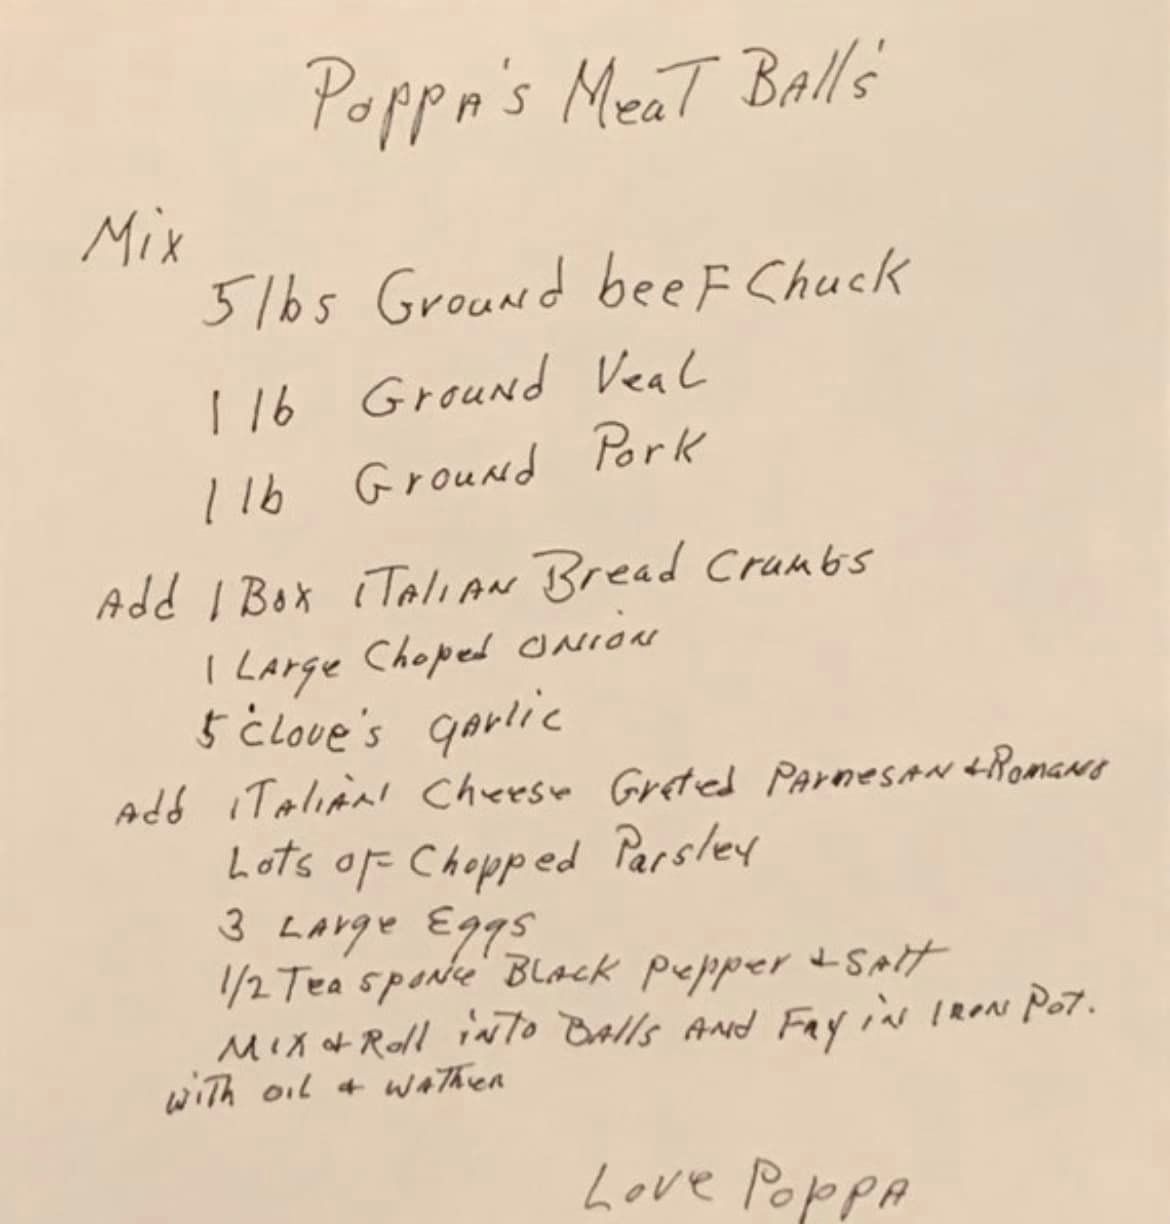 Poppa's Meat Balls'
Mix
5 lbs Ground beef Chuck
1 lb Ground Veal
1 lb Ground Pork
Add 1 Box iTalian Bread Crumbs
1 Large Choped onion
5 clove's garlic
Add iTalian Cheese Grated Parmesan & Romano
Lots of Chopped Parsley
3 Large Eggs
1/2 Tea sponce Black pepper & Salt
Mix & Roll into Balls And Fry in Iron Pot.
with oil & wather
Love Poppa